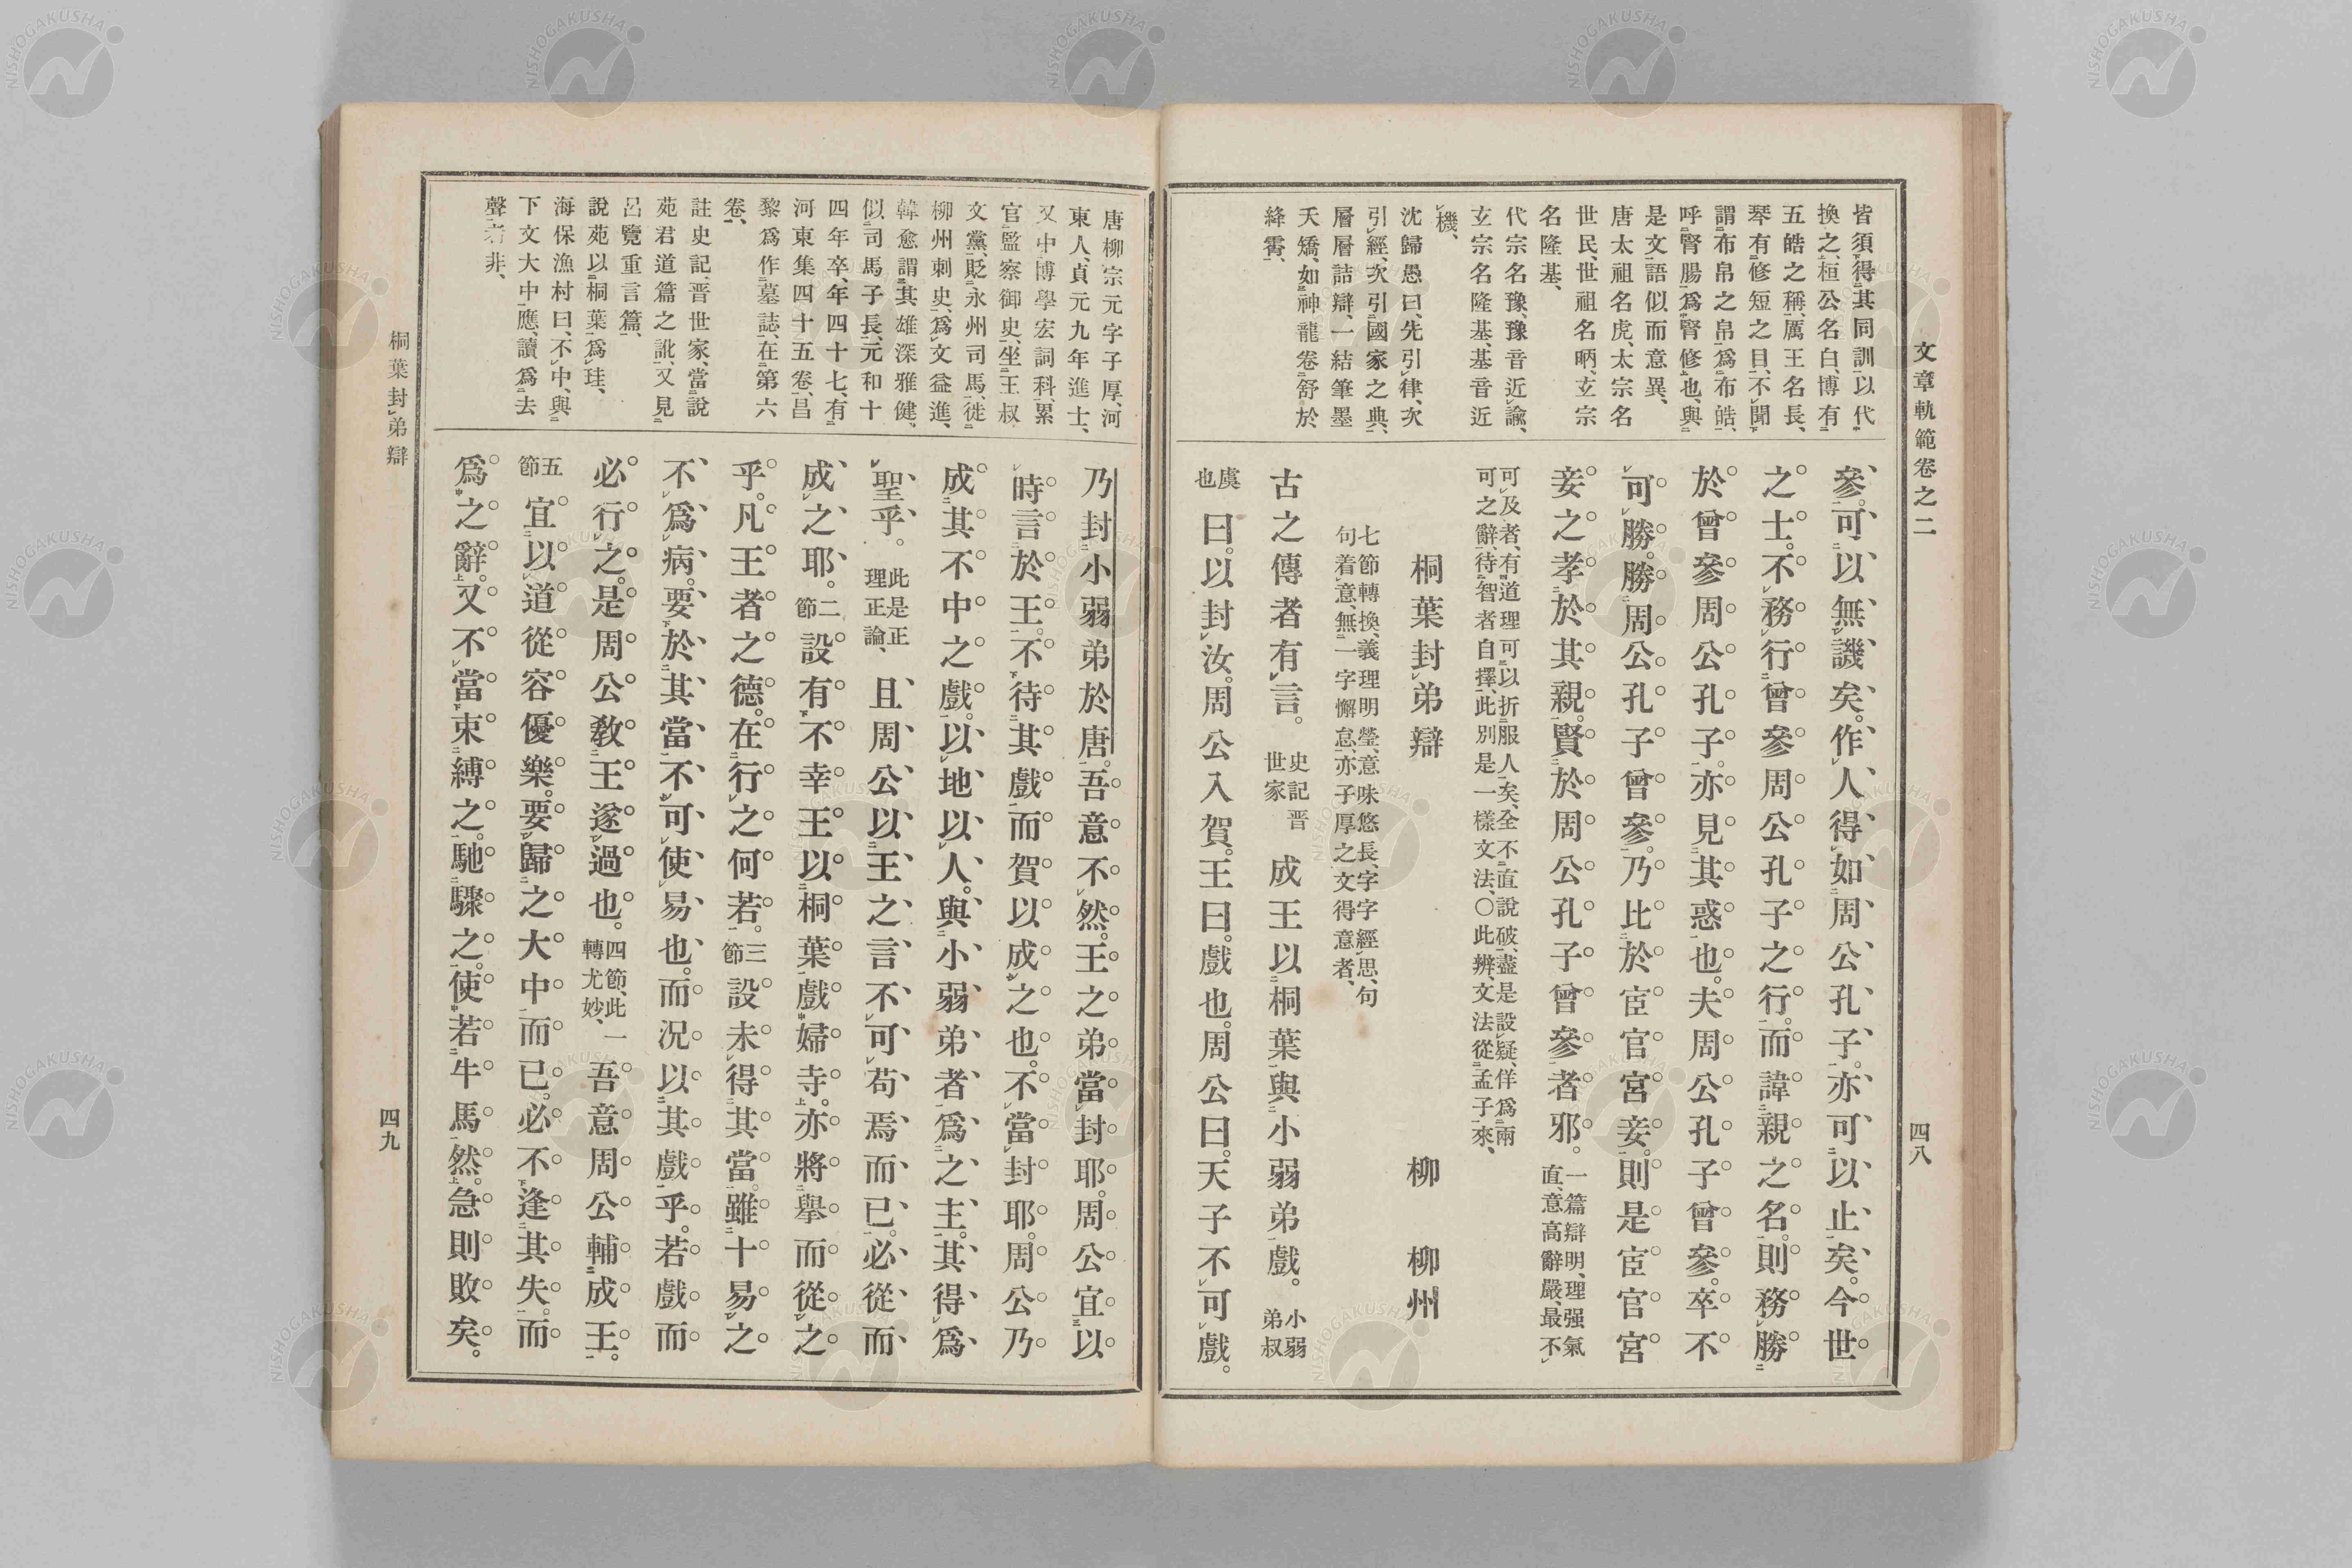 文章軌範卷之二
四八
皆須得其同訓以代
換之、桓公名白、博有
五皓之稱、厲王名長、
琴有修短之目、不聞
謂布帛之帛爲布皓、
呼腎腸爲腎修也、與
是文語似而意異、
唐太祖名虎、太宗名
世民、世祖名昞、玄宗
名隆基、
代宗名豫、豫音近諭、
玄宗名隆基、基音近
機、
沈歸愚曰、先引律、次
引經、次引國家之典、
層層詰辯、一結筆墨
夭矯、如神龍卷舒於
絳霄、
參。可以無譏矣。作人得如周公孔子。亦可以止矣。今世
之士。不務行曾參周公孔子之行。而諱親之名。則務勝
於曾參周公孔子。亦見其惑也。夫周公孔子曾參。卒不
可勝。勝周公孔子曾參。乃比於宦官宮妾。則是宦官宮
妾之孝於其親。賢於周公孔子曾參者邪。一篇辯明、理强氣直、意高辭嚴、最不
可及者、有道理可以折服人矣、全不直說破、盡是設疑、佯爲兩
可之辭、待智者自擇、此別是一樣文法、〇此辨、文法從孟子來、
桐葉封弟辯 柳柳州
七節轉換、義理明瑩、意味悠長、字字經思、句
句着意、無一字懈怠、亦子厚之文得意者、
古之傳者有言。史記晋世家成王以桐葉與小弱弟戲。小弱弟叔
虞也曰。以封汝。周公入賀。王曰。戲也。周公曰。天子不可戲。
唐柳宗元字子厚、河
東人、貞元九年進士、
又中博學宏詞科、累
官監察御史、坐王叔
文黨、貶永州司馬、徙
柳州刺史、爲文益進、
韓愈謂其雄深雅健、
似司馬子長、元和十
四年卒、年四十七、有
河東集四十五卷、昌
黎爲作墓誌、在第六
卷、
註史記、晋世家、當說
苑君道篇之訛、又見
呂覽重言篇、
說苑以桐葉爲珪、
海保漁村曰、不中、與
下文大中應、讀爲去
聲者非、
乃封小弱弟於唐。吾意不然。王之弟當封耶。周公宜以
時言於王。不待其戲而賀以成之也。不當封耶。周公乃
成其不中之戲。以地以人。與小弱弟者爲之主。其得爲
聖乎。此是正理正論、且周公以王之言不可苟焉而已。必從而
成之耶。二節設有不幸王以桐葉戲婦寺。亦將舉而從之
乎。凡王者之德。在行之何若。三節設未得其當。雖十易之
不爲病。要於其當不可使易也。而況以其戲乎。若戲而
必行之。是周公敎王遂過也。四節、此一轉尤妙、吾意周公輔成王。
五節宜以道從容優樂。要歸之大中而已。必不逢其失。而
爲之辭。又不當束縛之。馳驟之。使若牛馬然。急則敗矣。
桐葉封弟辯
四九